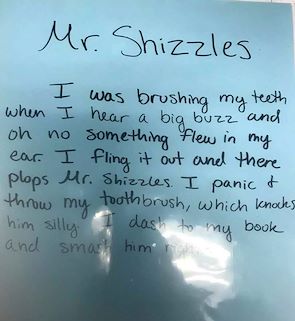 Mr. Shizzles
I was brushing my teeth
when I hear a big buzz and
oh no something flew in my
ear. I fling it out and there
plops Mr. Shizzles. I panic &
throw my toothbrush, which knocks
him silly. I dash to my book
and smash him